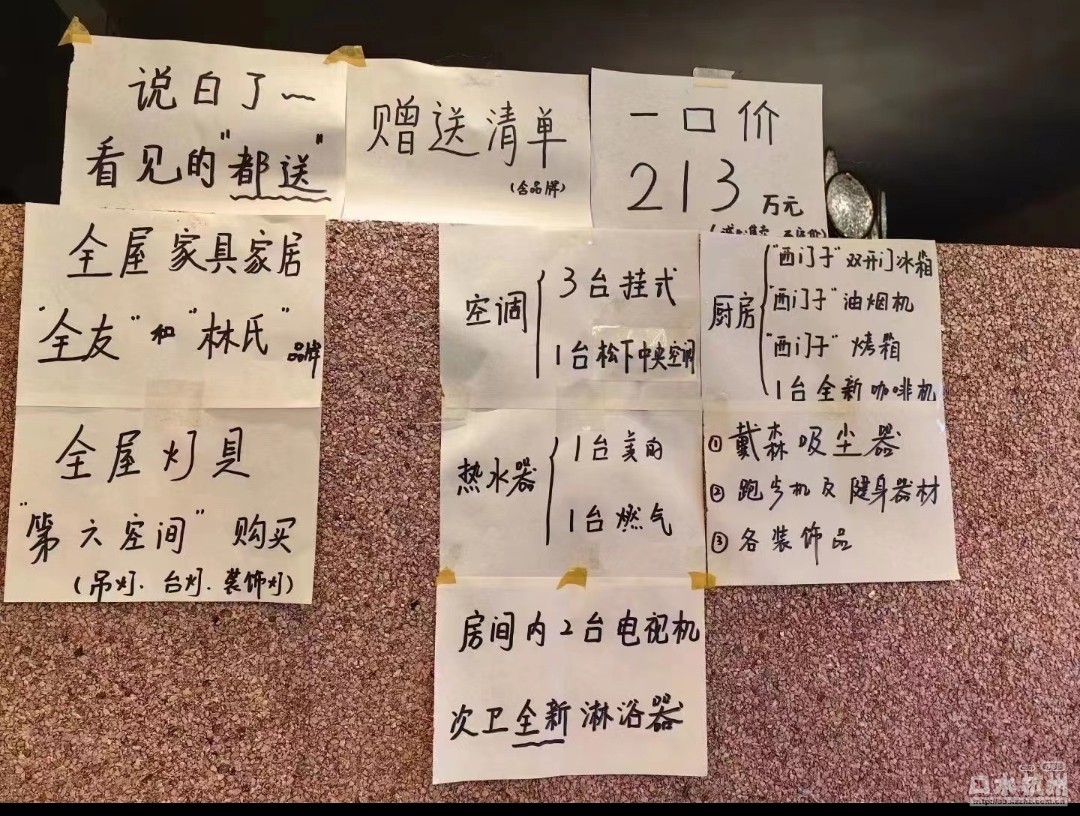 说白了~
看见的"都送"
赠送清单
(含品牌)
一口价
213万元
全屋家具家居
"全友"和"林氏"品牌
全屋灯具
"第六空间"购买
(吊灯、台灯、装饰灯)
空调
3台挂式
1台松下中央空调
热水器
1台美的
1台燃气
厨房
"西门子"双开门冰箱
"西门子"油烟机
"西门子"烤箱
1台全新咖啡机
①戴森吸尘器
②跑步机及健身器材
③各装饰品
房间内2台电视机
次卫全新淋浴器
口水杭州